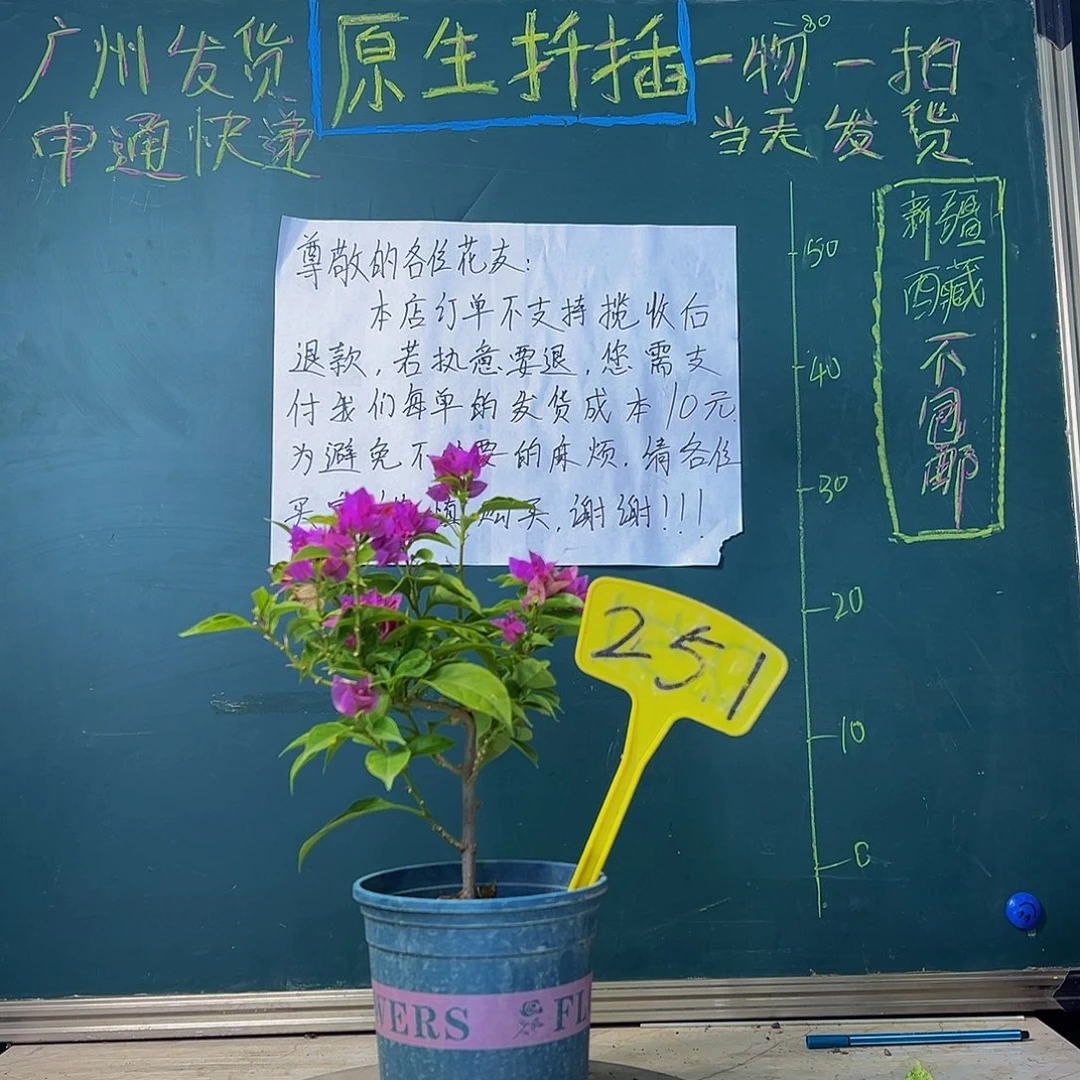 广州发货
申通快递
原生扦插
一物一拍
当天发货
尊敬的各位花友:
本店订单不支持揽收后
退款,若执意要退,您需支
付我们每单的发货成本10元.
为避免不 要的麻烦.请各位
买 慎购买,谢谢!!!
50
40
30
20
10
0
新疆
西藏
不
包
邮
251
WERS FL